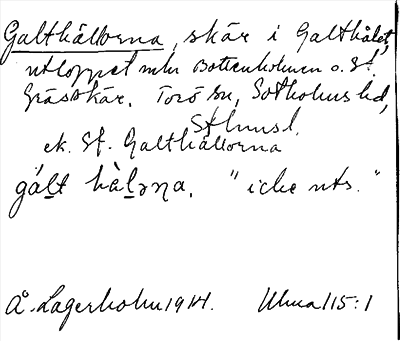 Galthällorna, skär i Galthålet,
utloppet mln Bottenholmen o. St.
Grässkär. Torö sn, Sotholms hd,
Sthmsl.
ek. St. Galthällorna
gált hàḷəṇa. "icke uts."
Å. Lagerholm 1914. Ulma 115:1